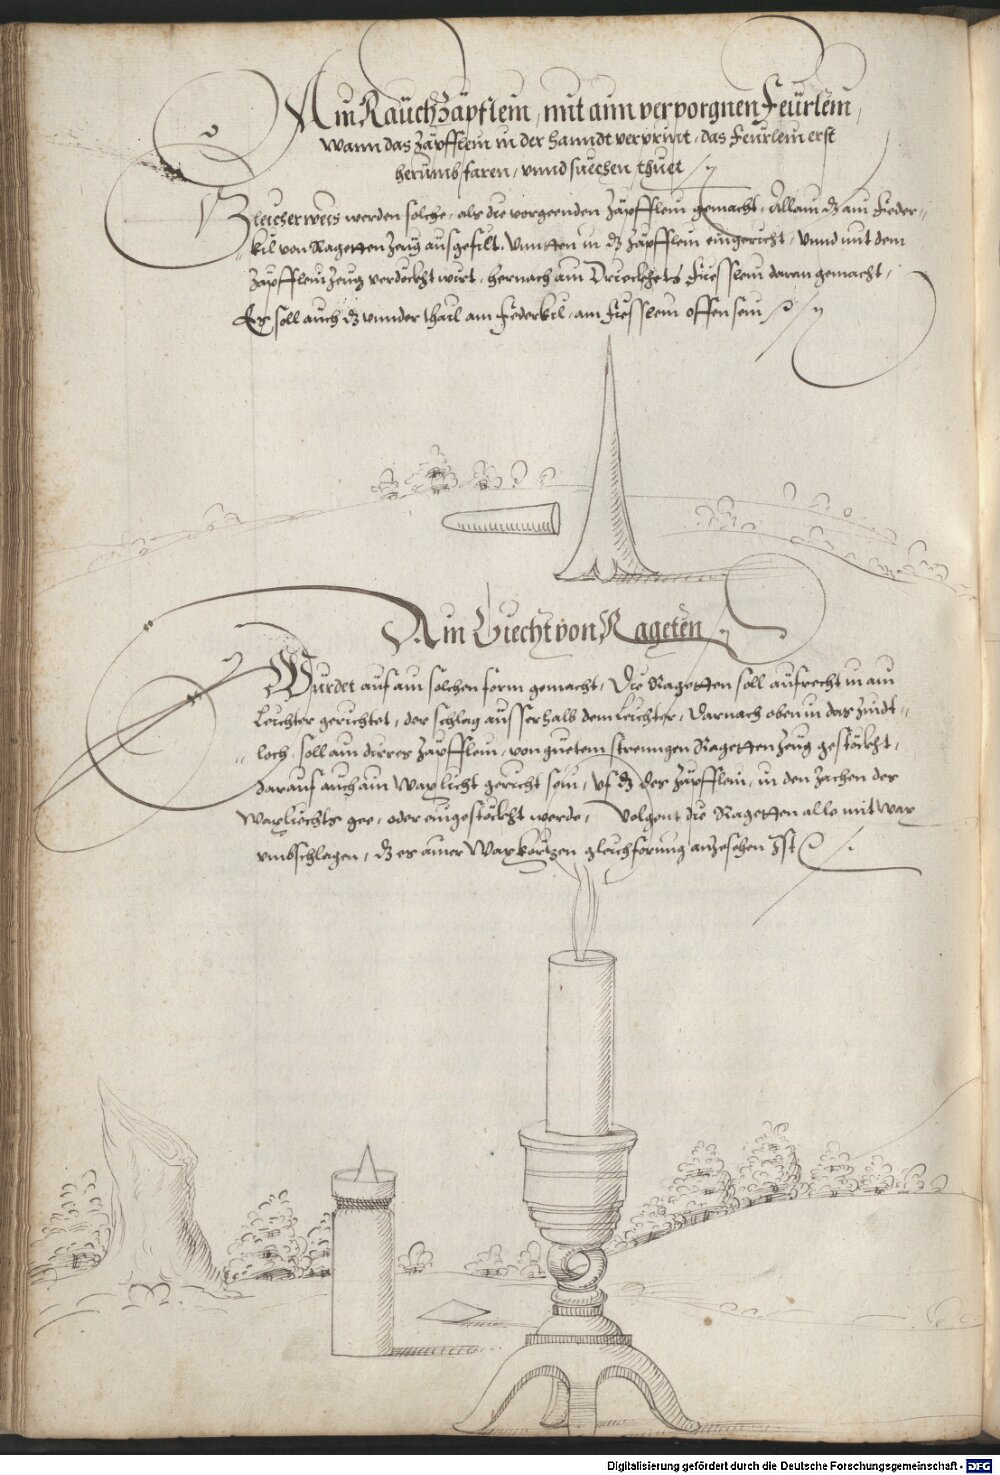 Ain Rauchzäpflein, mit aim verporgnen Feürlein,
Wann das Zäpfflein in der Hanndt verprint, das Feurlein erst
herumb faren, vnnd suechen thuet
Gleicherweis werden solche, als die vorgeenden Zäpfflein gemacht, Allain dz ain Feder-
kil von Ragetten Zeug ausgefilt, vnntten in dz Zäpfflein eingericht, vnnd mit dem
Zäpfflein Zeug verdeckht wirt, hernach ain Driecketts Fiesslein daran gemacht,
Es soll auch dz vnnder thail am Federkil, am Fiesslein offen sein
Ain Liecht von Rageten
Würdet auf ain solchen form gemacht, Die Ragetten soll aufrecht in ain
Leichter gerichtet, der schlag ausserhalb dem Leichter, Darnach oben in das Zindt-
loch, soll ain dirres Zäpfflein, von guetem strenngen Ragetten Zeug gestöckht,
darauf auch ain Waxlicht gericht sein, vf dz des Zäpfflein, in den Zachen des
Waxliechts gee, oder eingestöckht werde, Volgent die Ragetten alle mit Wax
vmbschlagen, dz es ainer Wax körtzen gleichförmig anzesehen Ist
Digitalisierung gefördert durch die Deutsche Forschungsgemeinschaft - DFG